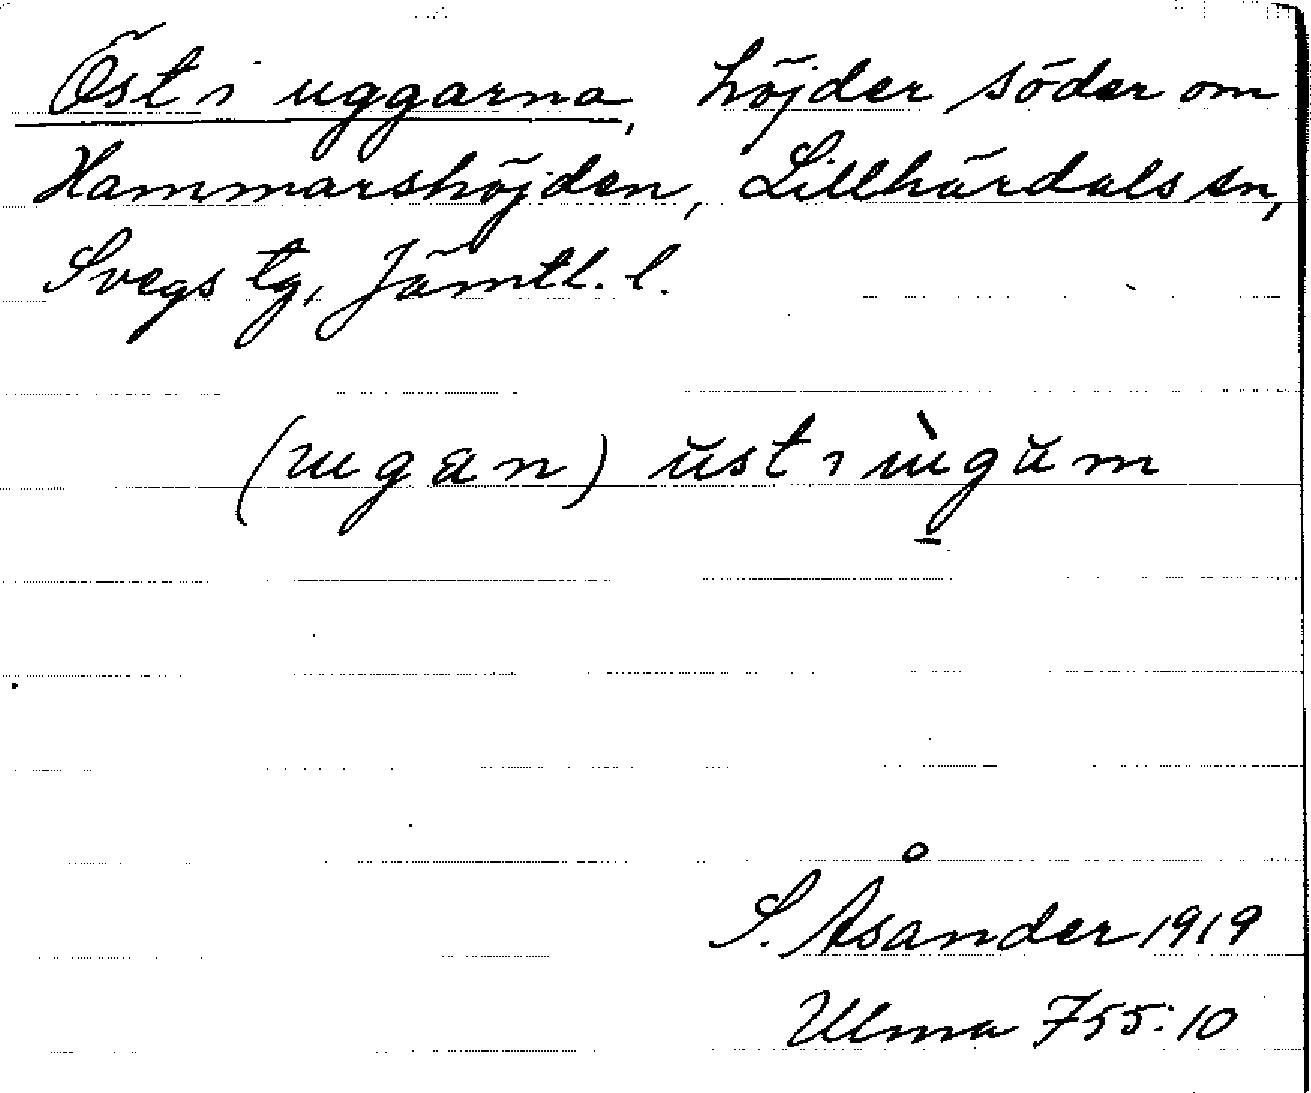 Öst i uggarna, höjder söder om
Hammarshöjden, Lillhärdals sn,
Svegs tg, Jämtl. l.
(ugan) üst ı ùgŭm
S. Åsander 1919
Ulma 755:10